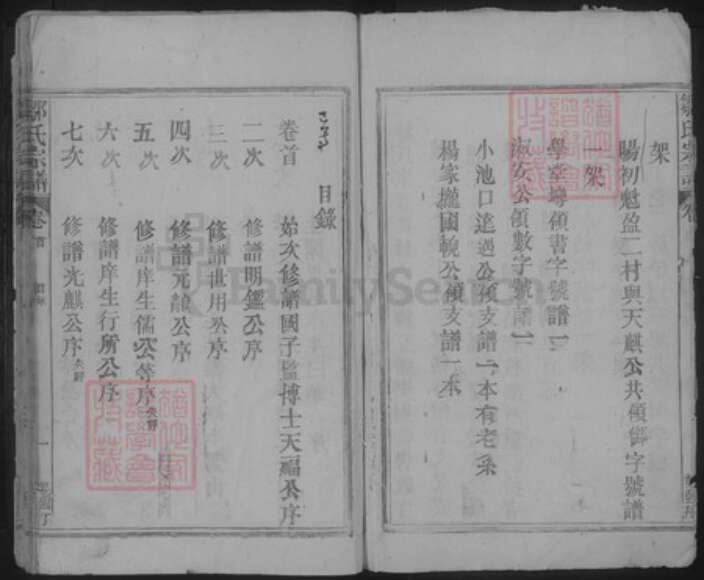 架
暘初魁盈二村與天麒公共領御字號譜
一架
學堂塆領書字號譜一
淑女公領數字號譜一
小池口遙過公領支譜一本有老系
楊家攏國輗公領支譜一本
目錄
卷首 始次修譜國子監博士天福公序
二次 修譜明鑑公序
三次 修譜世用公序
四次 修譜元韻公序
五次 修譜庠生儒公等序失詳
六次 修譜庠生行所公序
七次 修譜光麒公序失詳
氏宗譜 卷首 目錄 一
FamilySearch